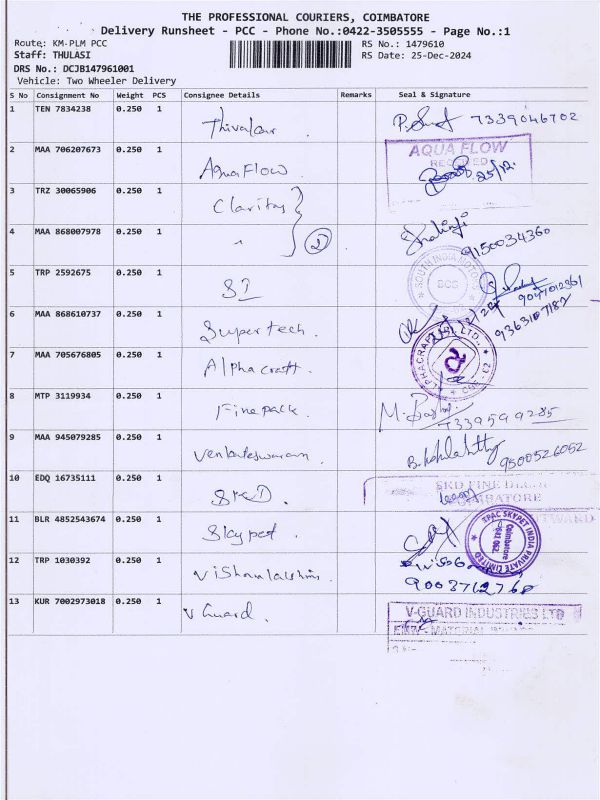 THE PROFESSIONAL COURIERS, COIMBATORE
Delivery Runsheet - PCC - Phone No.:0422-3505555 - Page No.:1
Route: KM-PLM PCC RS No.: 1479610
Staff: THULASI RS Date: 25-Dec-2024
DRS No.: DCJB147961001
Vehicle: Two Wheeler Delivery
S No Consignment No Weight PCS Consignee Details Remarks Seal & Signature
1 TEN 7834238 0.250 1 7339046702
2 MAA 706207673 0.250 1 AquaFlow. AQUA FLOW
RECEIVED
25/12
3 TRZ 30065906 0.250 1 Claritas
4 MAA 868007978 0.250 1 " 2 9150034360
SOUTH INDIA MOTORS
5 TRP 2592675 0.250 1 SI
6 MAA 868610737 0.250 1 Supertech.
7 MAA 705676805 0.250 1 Alphacraft.
8 MTP 3119934 0.250 1 Finepack. 7339599285
9 MAA 945079285 0.250 1 9500526052
10 EDQ 16735111 0.250 1 SKD.
COIMBATORE
11 BLR 4852543674 0.250 1 Skypet. SKYPET INDIA PRIVATE LIMITED
Coimbatore
641 062
12 TRP 1030392 0.250 1 9003712768
13 KUR 7002973018 0.250 1 V Guard. V-GUARD INDUSTRIES LTD